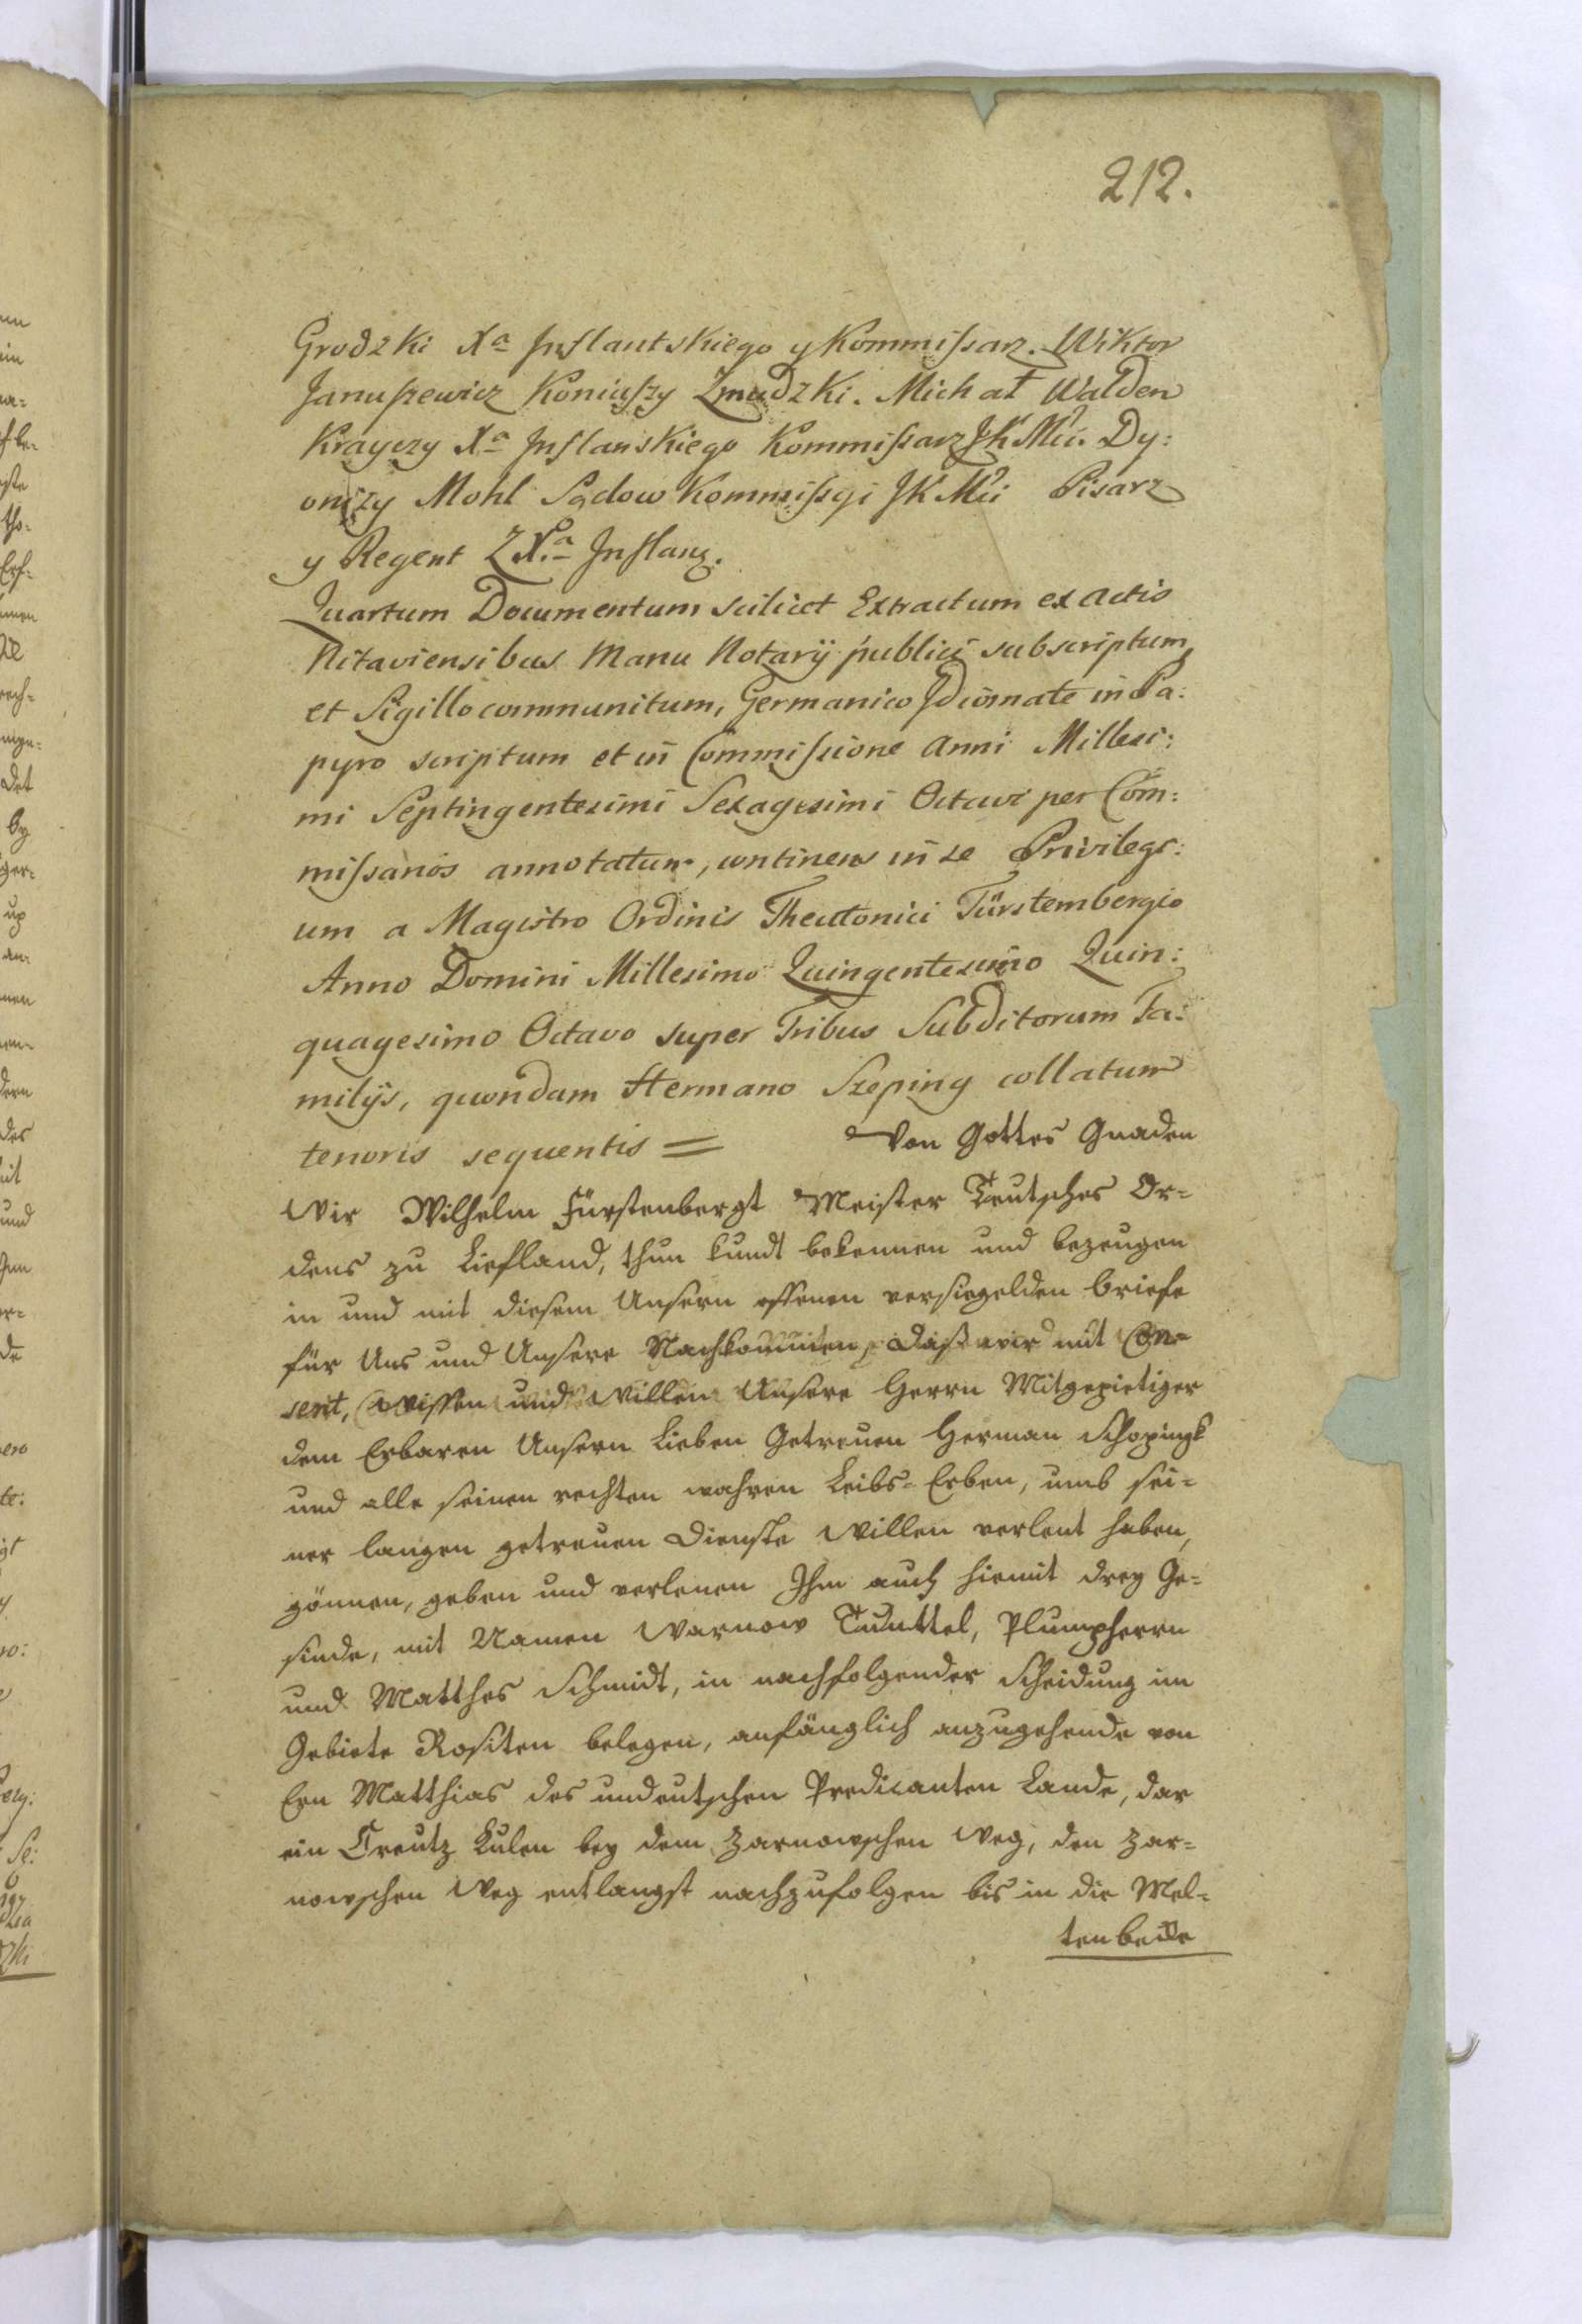 212.
Grodzki Xa Inflantskiego y Kommissarz. Wiktor
Januszewicz Koniuszy Zmudzki. Michał Walden
Krayczy Xa Inflanskiego Kommissarz JKMci. Dy:
onizy Mohl Sądow Kommissyi JKMci Pisarz
y Regent Z Xa Inflanz.
Quartum Documentum scilicet Extractum ex actis
Mitaviensibus Manu Notarij publici subscriptum
et Sigillo communitum, Germanico Idiomate in Pa:
pyro scriptum et in Commissione Anni Millesi:
mi Septingentesimi Sexagesimi Octavi per Com:
missarios annotatum, continens in se Privilegi:
um a Magistro Ordinis Theutonici Fürstembergio
Anno Domini Millesimo Quingentesimo Quin:
quagesimo Octavo super Tribus Subditorum Fa:
milijs, quondam Hermano Szeping collatum
tenoris sequentis = Von Gottes Gnaden
Wir Wilhelm Fürstenbergt Meister Teutsches Or=
dens zu Liefland, thun kundt bekennen und bezeugen
in und mit diesem Unsern offenen versiegelden briefe
für Uns und Unsere Nachkommen, daß wir mit Con=
sent, Wissen und Willen Unsere Herrn Mitgepietiger
dem Erbaren Unsern Lieben Getreuen Herman Schopingk
und alle seinen rechten wahren Leibs-Erben, umb sei=
ner langen getreuen Dienste Willen verlent haben,
gönnen, geben und verlenen Ihm auch hiemit drey Ge=
sinde, mit Namen Warnow Tunttel, Plumpherrn
und Matthes Schmidt, in nachfolgender Scheidung im
Gebiete Rositen belegen, anfänglich anzugehende von
Ern Matthias des undeutschen Predicanten Lande, dar
ein Creutz Kulen bey dem Zarnowschen Weg, den Zar=
nowschen Weg entlangst nachzufolgen bis in die Mel=
tenbecke